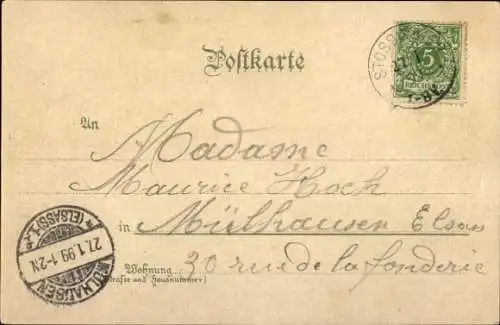 Postkarte
STOSS
27 1
7-8V
5
REICHSPOST
An
Madame
Maurice Hoch
in Mülhausen Elsass
Wohnung
(Straße und Hausnummer)
30 rue de la fonderie
MÜLHAUSEN
27.1.99. 1-2N
* (ELSASS) 1. *